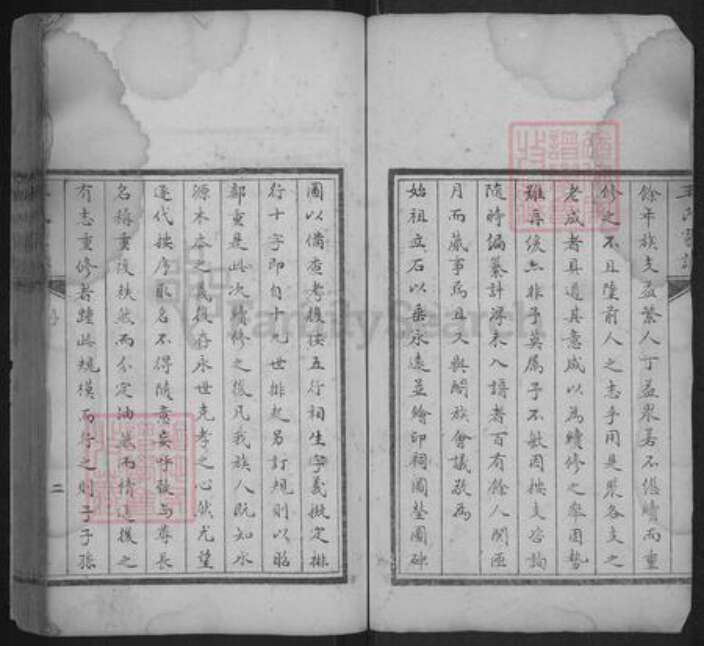 王氏家譜
餘年族支益繁人丁益眾若不繼續而重
修之不且墮前人之志乎用是聚各支之
老成者具道其意咸以為續修之舉固勢
難再緩亦非予莫屬予不敏因按支咨詢
隨時編纂計得未入譜者百有餘人閱匝
月而蕆事焉且又與闔族會議敬為
始祖立石以垂永遠並繪印祠圖塋圖碑
圖以備查考復按五行相生字義擬定排
行十字即自十九世排起另訂規則以昭
鄭重是此次續修之後凡我族人既知水
源木本之義後存永世克孝之心然尤望
逐代按序取名不得隨意妄呼致與尊長
名稱重複秩然而分定油然而情這後之
有志重修者踵此規模而行之則子子孫
二
FamilySearch